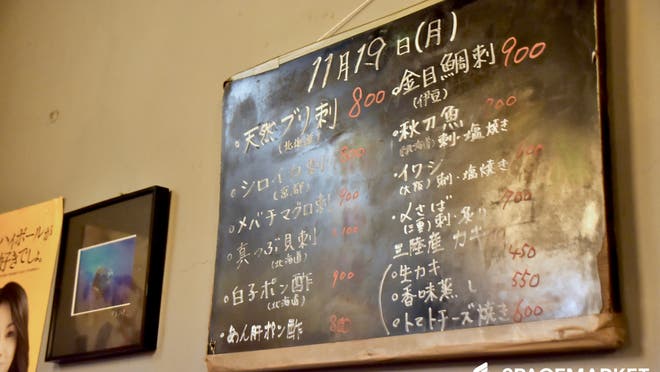 11月19日(月)
天然ブリ刺 800
(北海道)
(京都)
メバチマグロ刺 900
真つぶ貝刺
(北海道)
白子ポン酢 900
(北海道)
あん肝ポン酢
金目鯛刺 900
(伊豆)
秋刀魚
刺・塩焼き
イワシ
(大阪) 刺・塩焼き
〆さば 900
(三重) 刺・炙り
三陸産 カキ
生カキ 450
香味蒸し 550
トマトチーズ焼き 600
ハイボールが
好きでしょ
SPACEMARKET